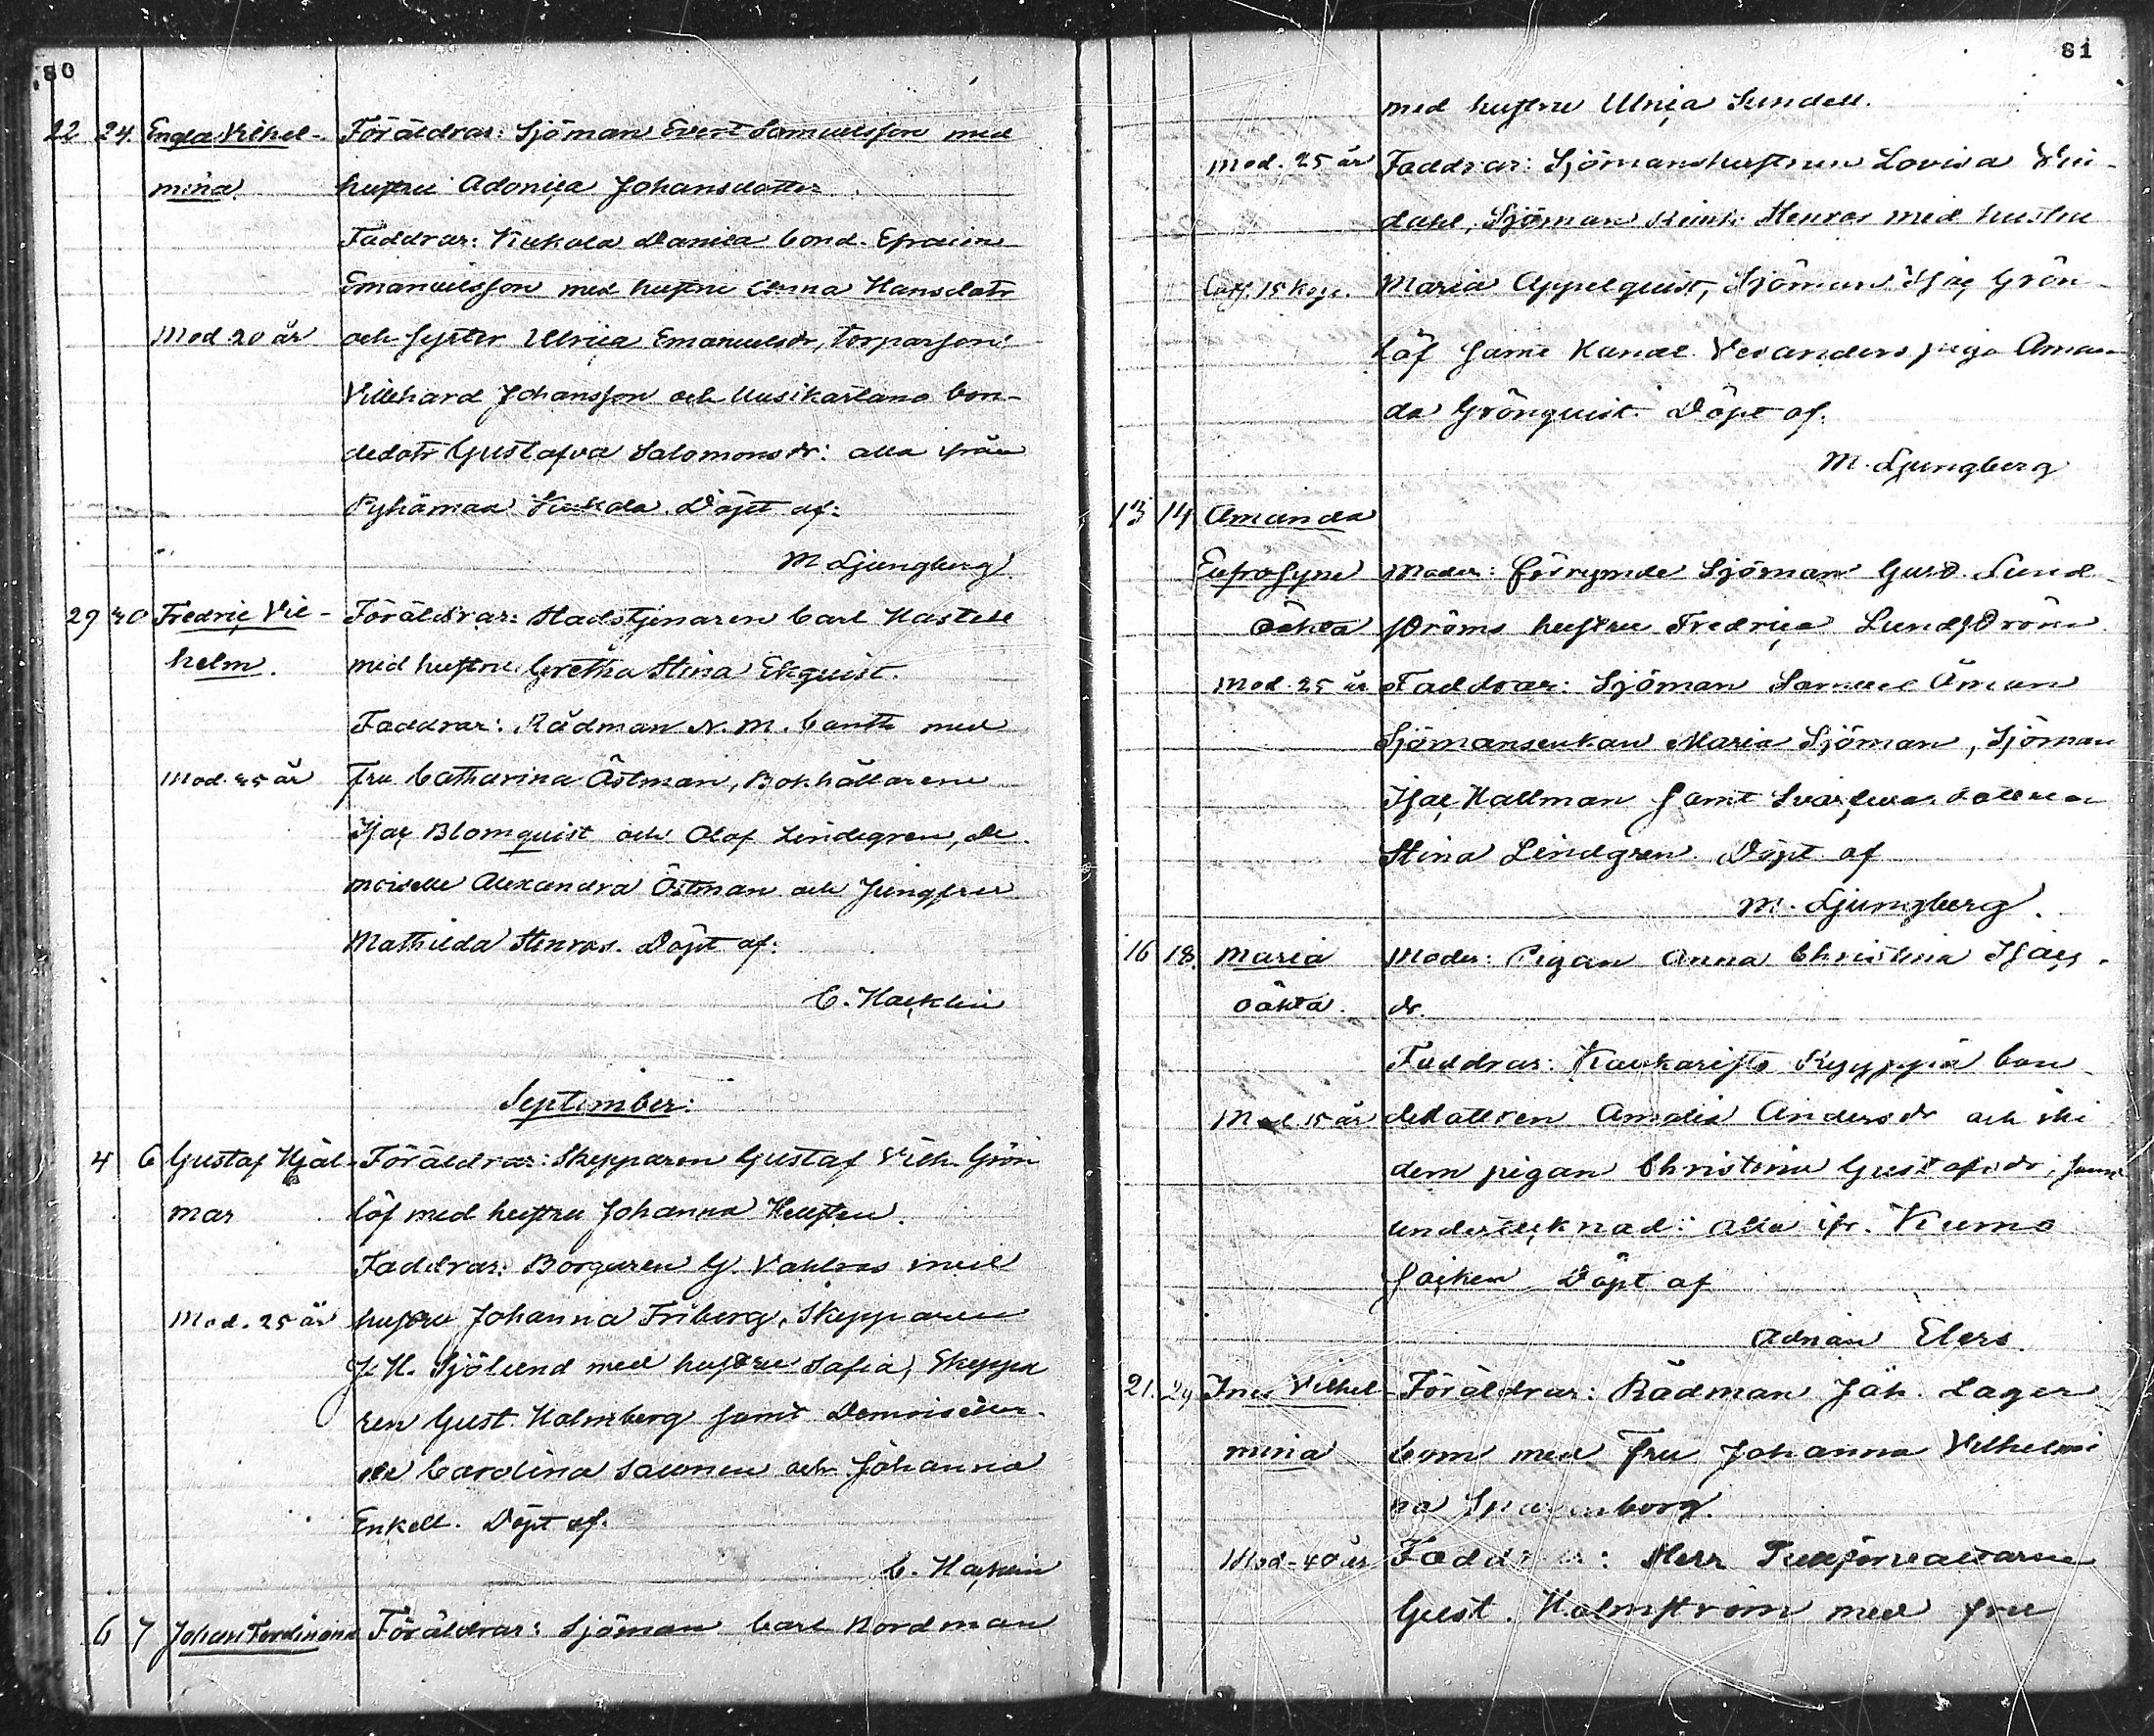 80
22 24. Engla Vilhel- Föräldrar: Sjöman Evert Samuelsson med
mina. hustru Adonica Johansdotter
Faddrar: Kukola Daniela bond. Efraim
Emanuelsson med hustru Anna Hansdotr
Mod 20 år och syster Ulrica Emanuelsdr, torparson
Villehard Johansson och Uusikartano bon-
dedotr Gustafva Salomonsdr: alla från
Pyhämaa Kukola. Döpt af:
M Ljungberg
29 30 Fredric Vil- Föräldrar: Stadstjenaren Carl Hastell
helm. med hustru Gretha Stina Ekquist.
Faddrar: Rådman N. M. Canth med
Mod. 25 år fru Catharina Östman, Bokhållarene
Isac Blomquist och Olof Lindegren, De-
moiselle Alexandra Östman och Jungfru
Mathilda Stenros. Döpt af:
C. Hacklin
September:
4 6 Gustaf Hjal- Föräldrar: Skepparen Gustaf Vilh. Grön
mar löf med hustru Johanna
Faddrar: Borgaren G. Vahlros med
Mod. 25 år hustru Johanna Friberg, Skepparen
J. H. Sjölund med hustru Sofia, Skeppa
ren Gust. Holmberg samt Demoiseller-
na Carolina Salonen och Johanna
Enkell. Döpt af.
C. Hacklin
6 7 Johan Ferdinand Föräldrar: Sjöman Carl Nordman
81
med hustru Ulrica Sundell.
Mod. 25 år Faddrar: Sjömanshustrun Lovisa
dahl, Sjöman Stenros med hustru
15 kop. Maria Appelquist, Sjöman Isac Grön-
löf samt Kanal. Veranders piga Aman-
da Grönquist. Döpt af.
M. Ljungberg
13 14 Amanda
Eufrosyne Moder: förrymde Sjöman Gust. Lund-
oäkta ströms hustru Fredrica Lundström
Mod. 25 år Faddrar: Sjöman Samuel Öman
Sjömansenkan Maria Sjöman, Sjöman
Isac Hallman samt Svarfvaredottren
Stina Lindgren. Döpt af
M. Ljungberg.
16 18. Maria Moder: Pigan Anna Christina Isacs-
oäkta. dr.
Faddrar: Kaukaristo bon-
Mod. 15 år dedottren Amalia Andersdr och
dem pigan Christina Gustafsdr, samt
undertecknad: alla ifr. Kumo
socken Döpt af
Adrian Elers.
21. 29 Ines Vilhel- Föräldrar: Rådman Joh. Lager
mina bom med fru Johanna Vilhelmi
na
Mod. 40 år Faddrar: Herr Tullförvaltaren
Gust. Holmström med fru